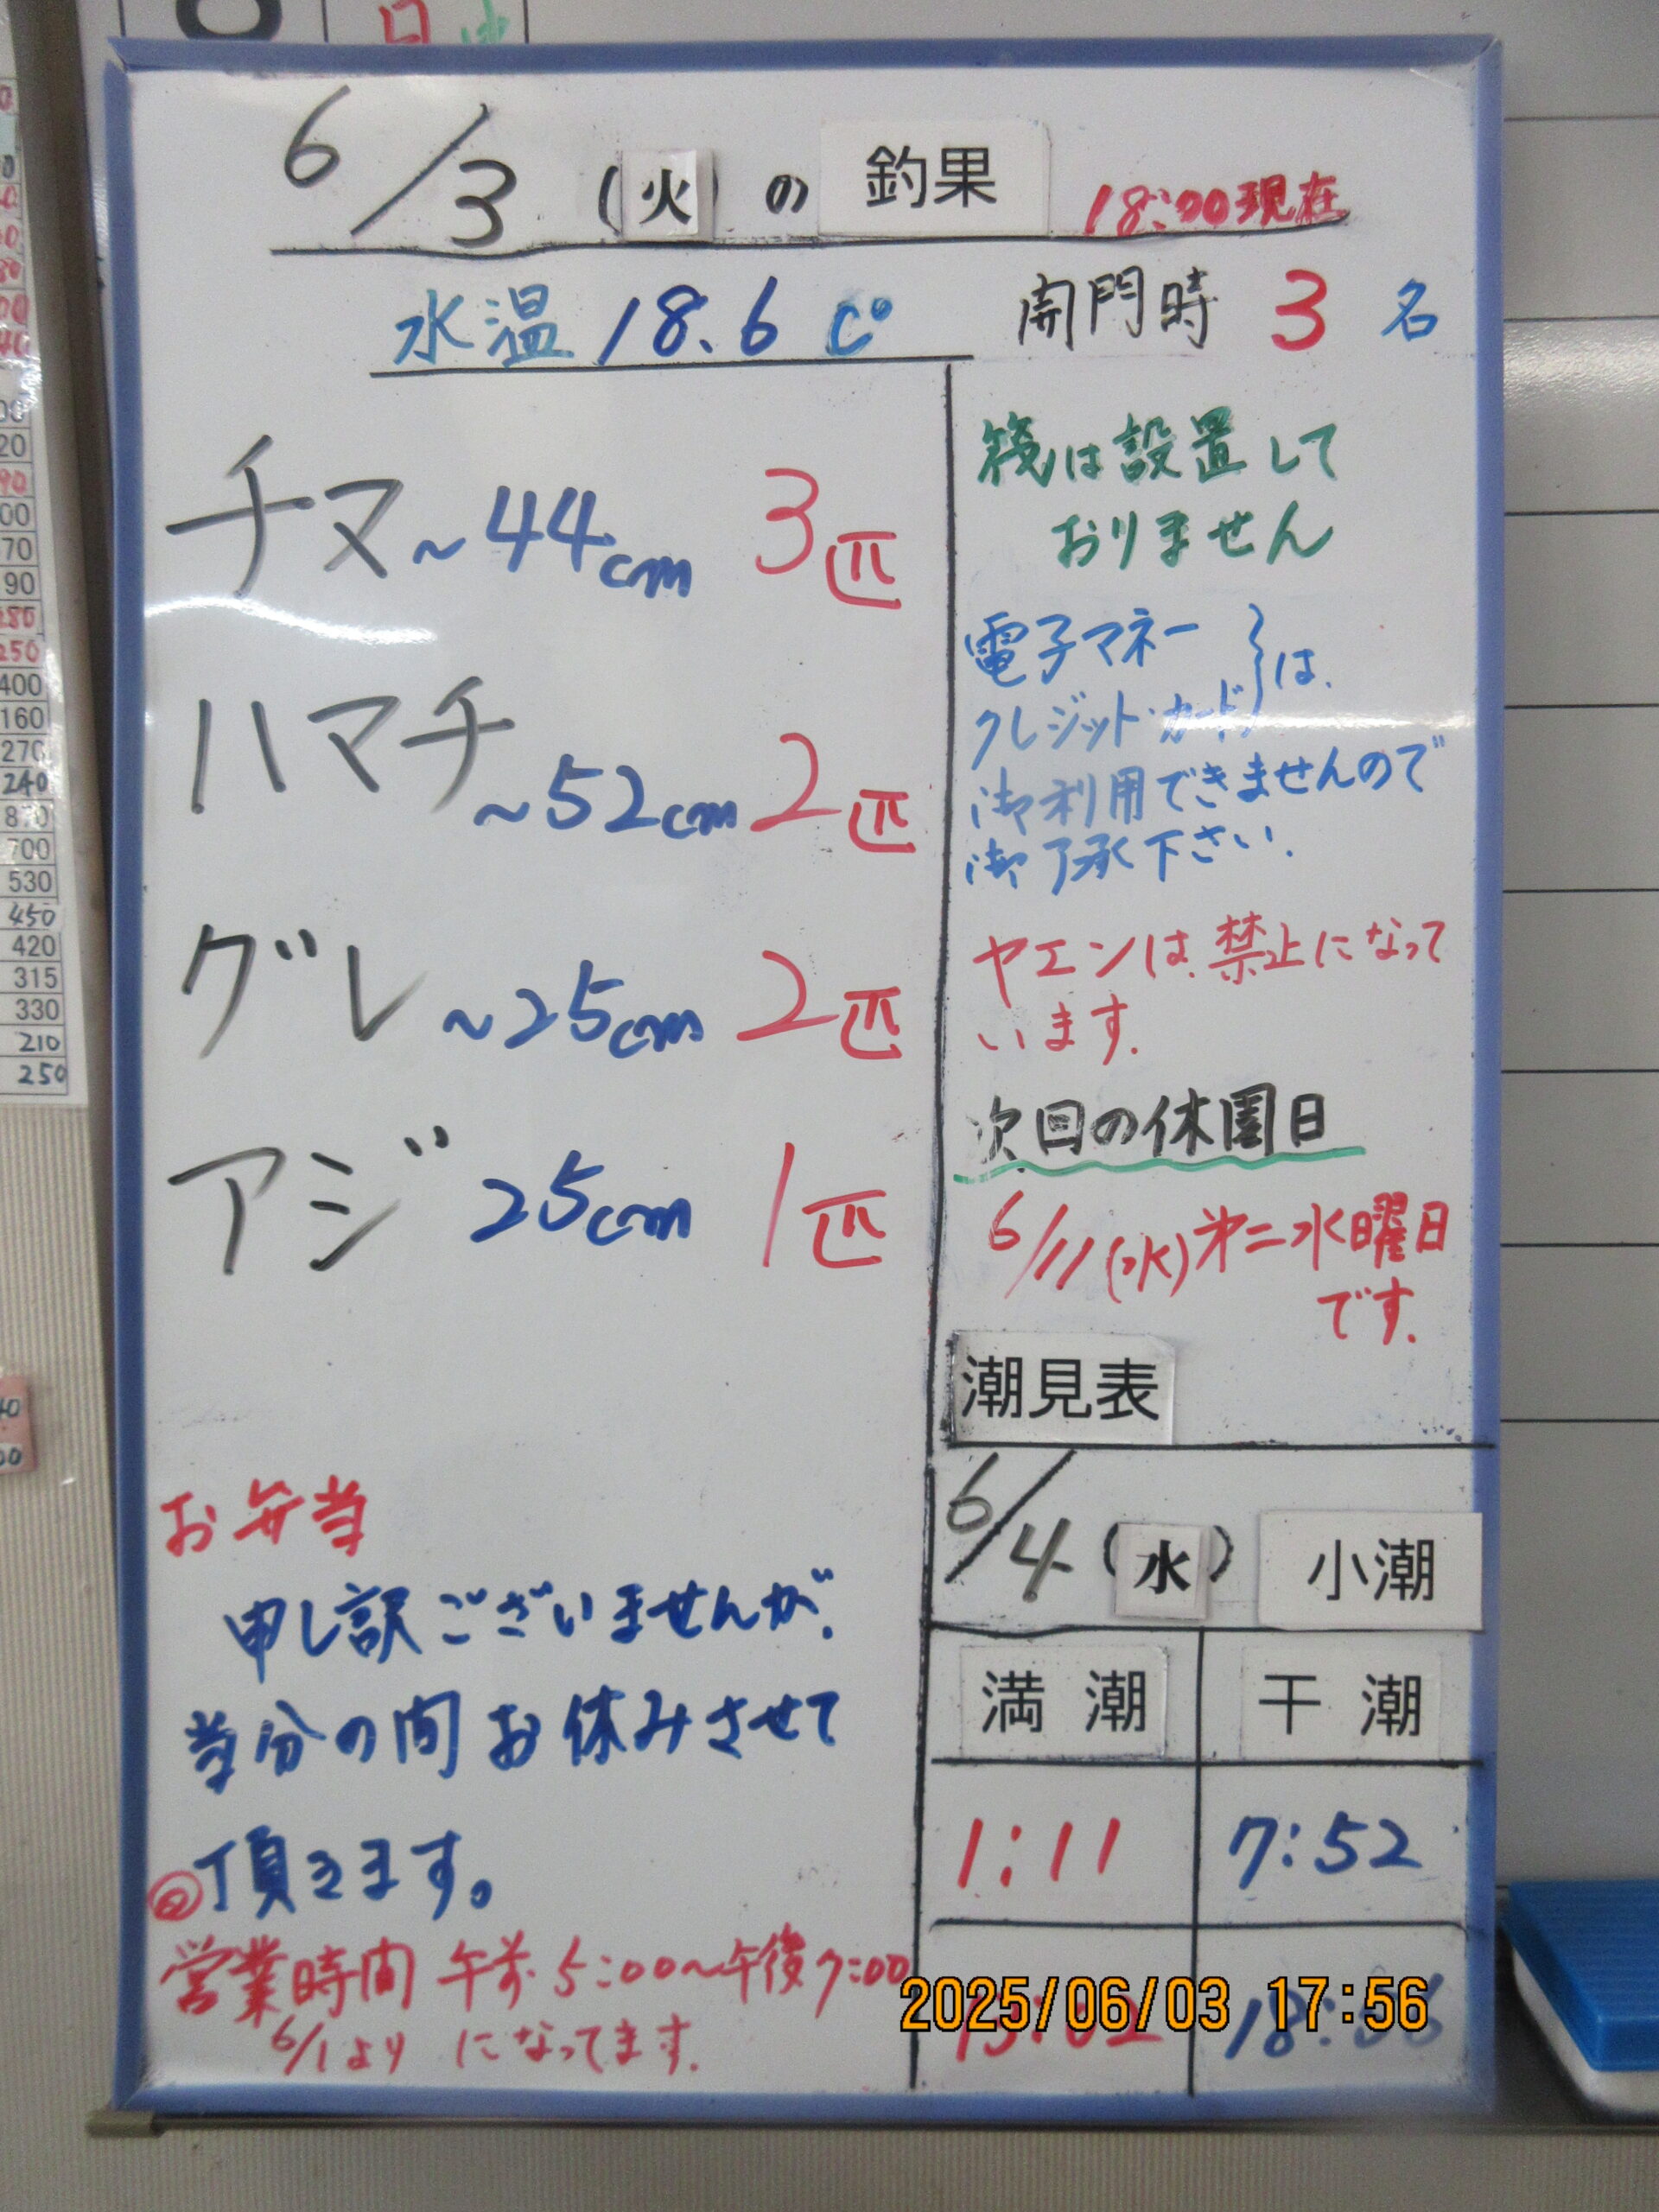 6/3 (火) の 釣果 18:00現在
水温 18.6 C° 開門時 3 名
チヌ ~44cm 3匹
ハマチ ~52cm 2匹
グレ ~25cm 2匹
アジ 25cm 1匹
お弁当
申し訳ございませんが、
当分の間 お休みさせて
頂きます。
営業時間 午前 5:00~午後7:00
6/1より になってます.
筏は設置して
おりません
電子マネー
クレジット・カード }は、
御利用できませんので
御了承下さい.
ヤエンは、禁止になって
います.
次回の休園日
6/11(水)第二水曜日
です.
潮見表
6/4 (水) 小潮
満 潮 干 潮
1:11 7:52
2025/06/03 17:56
240
870
700
530
450
420
315
330
210
250